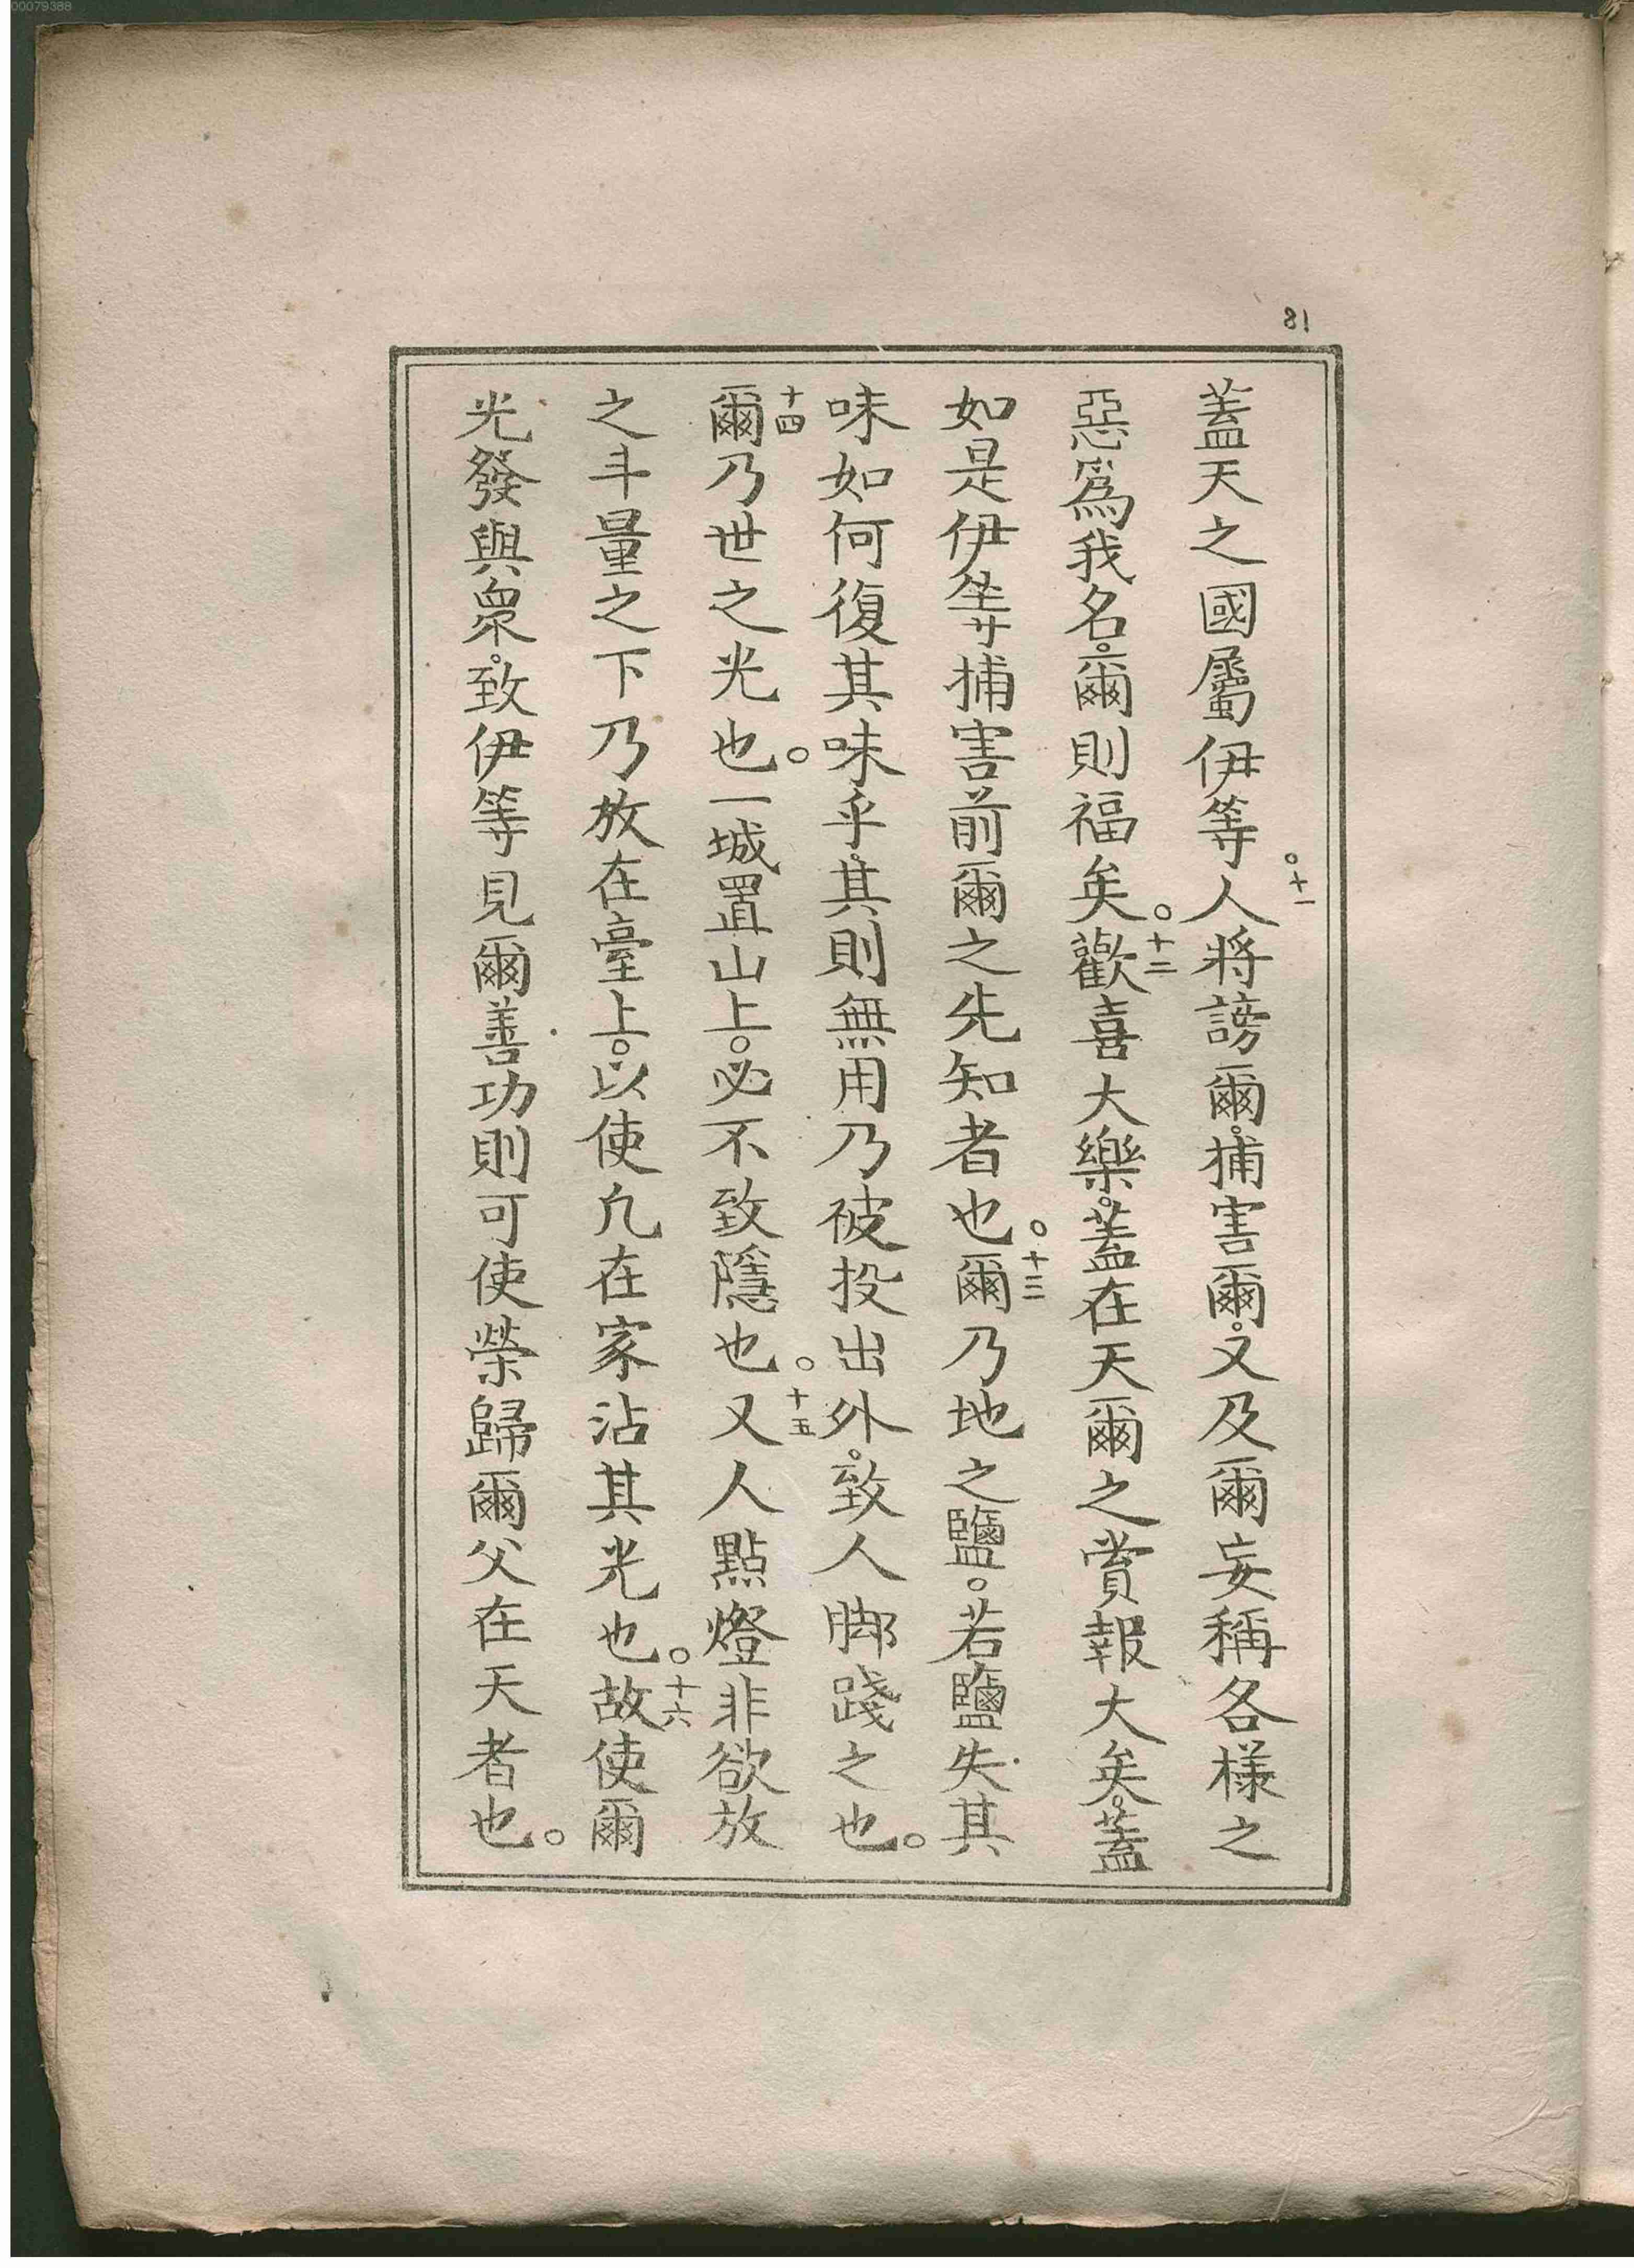 00079388
81
蓋天之國屬伊等。十一人將謗爾。捕害爾。又及爾妄稱各樣之
惡爲我名。爾則福矣。十二歡喜大樂。蓋在天爾之賞報大矣。蓋
如是伊等捕害前爾之先知者也。十三爾乃地之鹽。若鹽失其
味如何復其味乎。其則無用乃被投出外。致人脚踐之也。
十四爾乃世之光也。一城置山上。必不致隱也。十五又人點燈非欲放
之斗量之下乃放在臺上。以使凢在家沾其光也。十六故使爾
光發與衆。致伊等見爾善功則可使榮歸爾父在天者也。